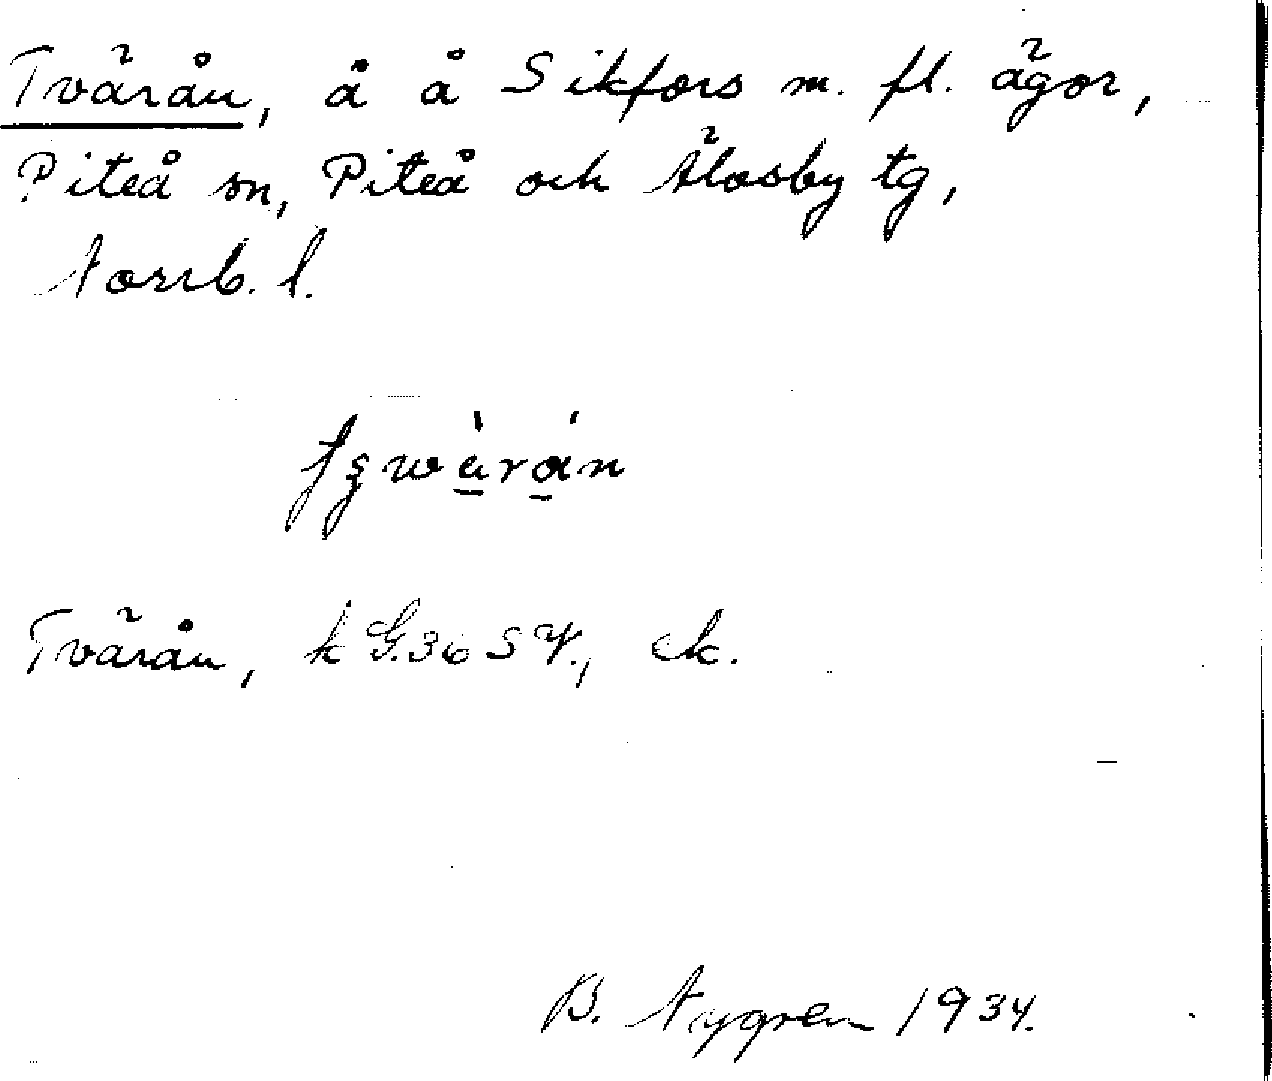 Tvärån, å å Sikfors m. fl. ägor,
Piteå sn, Piteå och Älvsby tg,
Norrb. l.
Tvärån, k G. 36 SV., ek.
B. Nygren 1934.